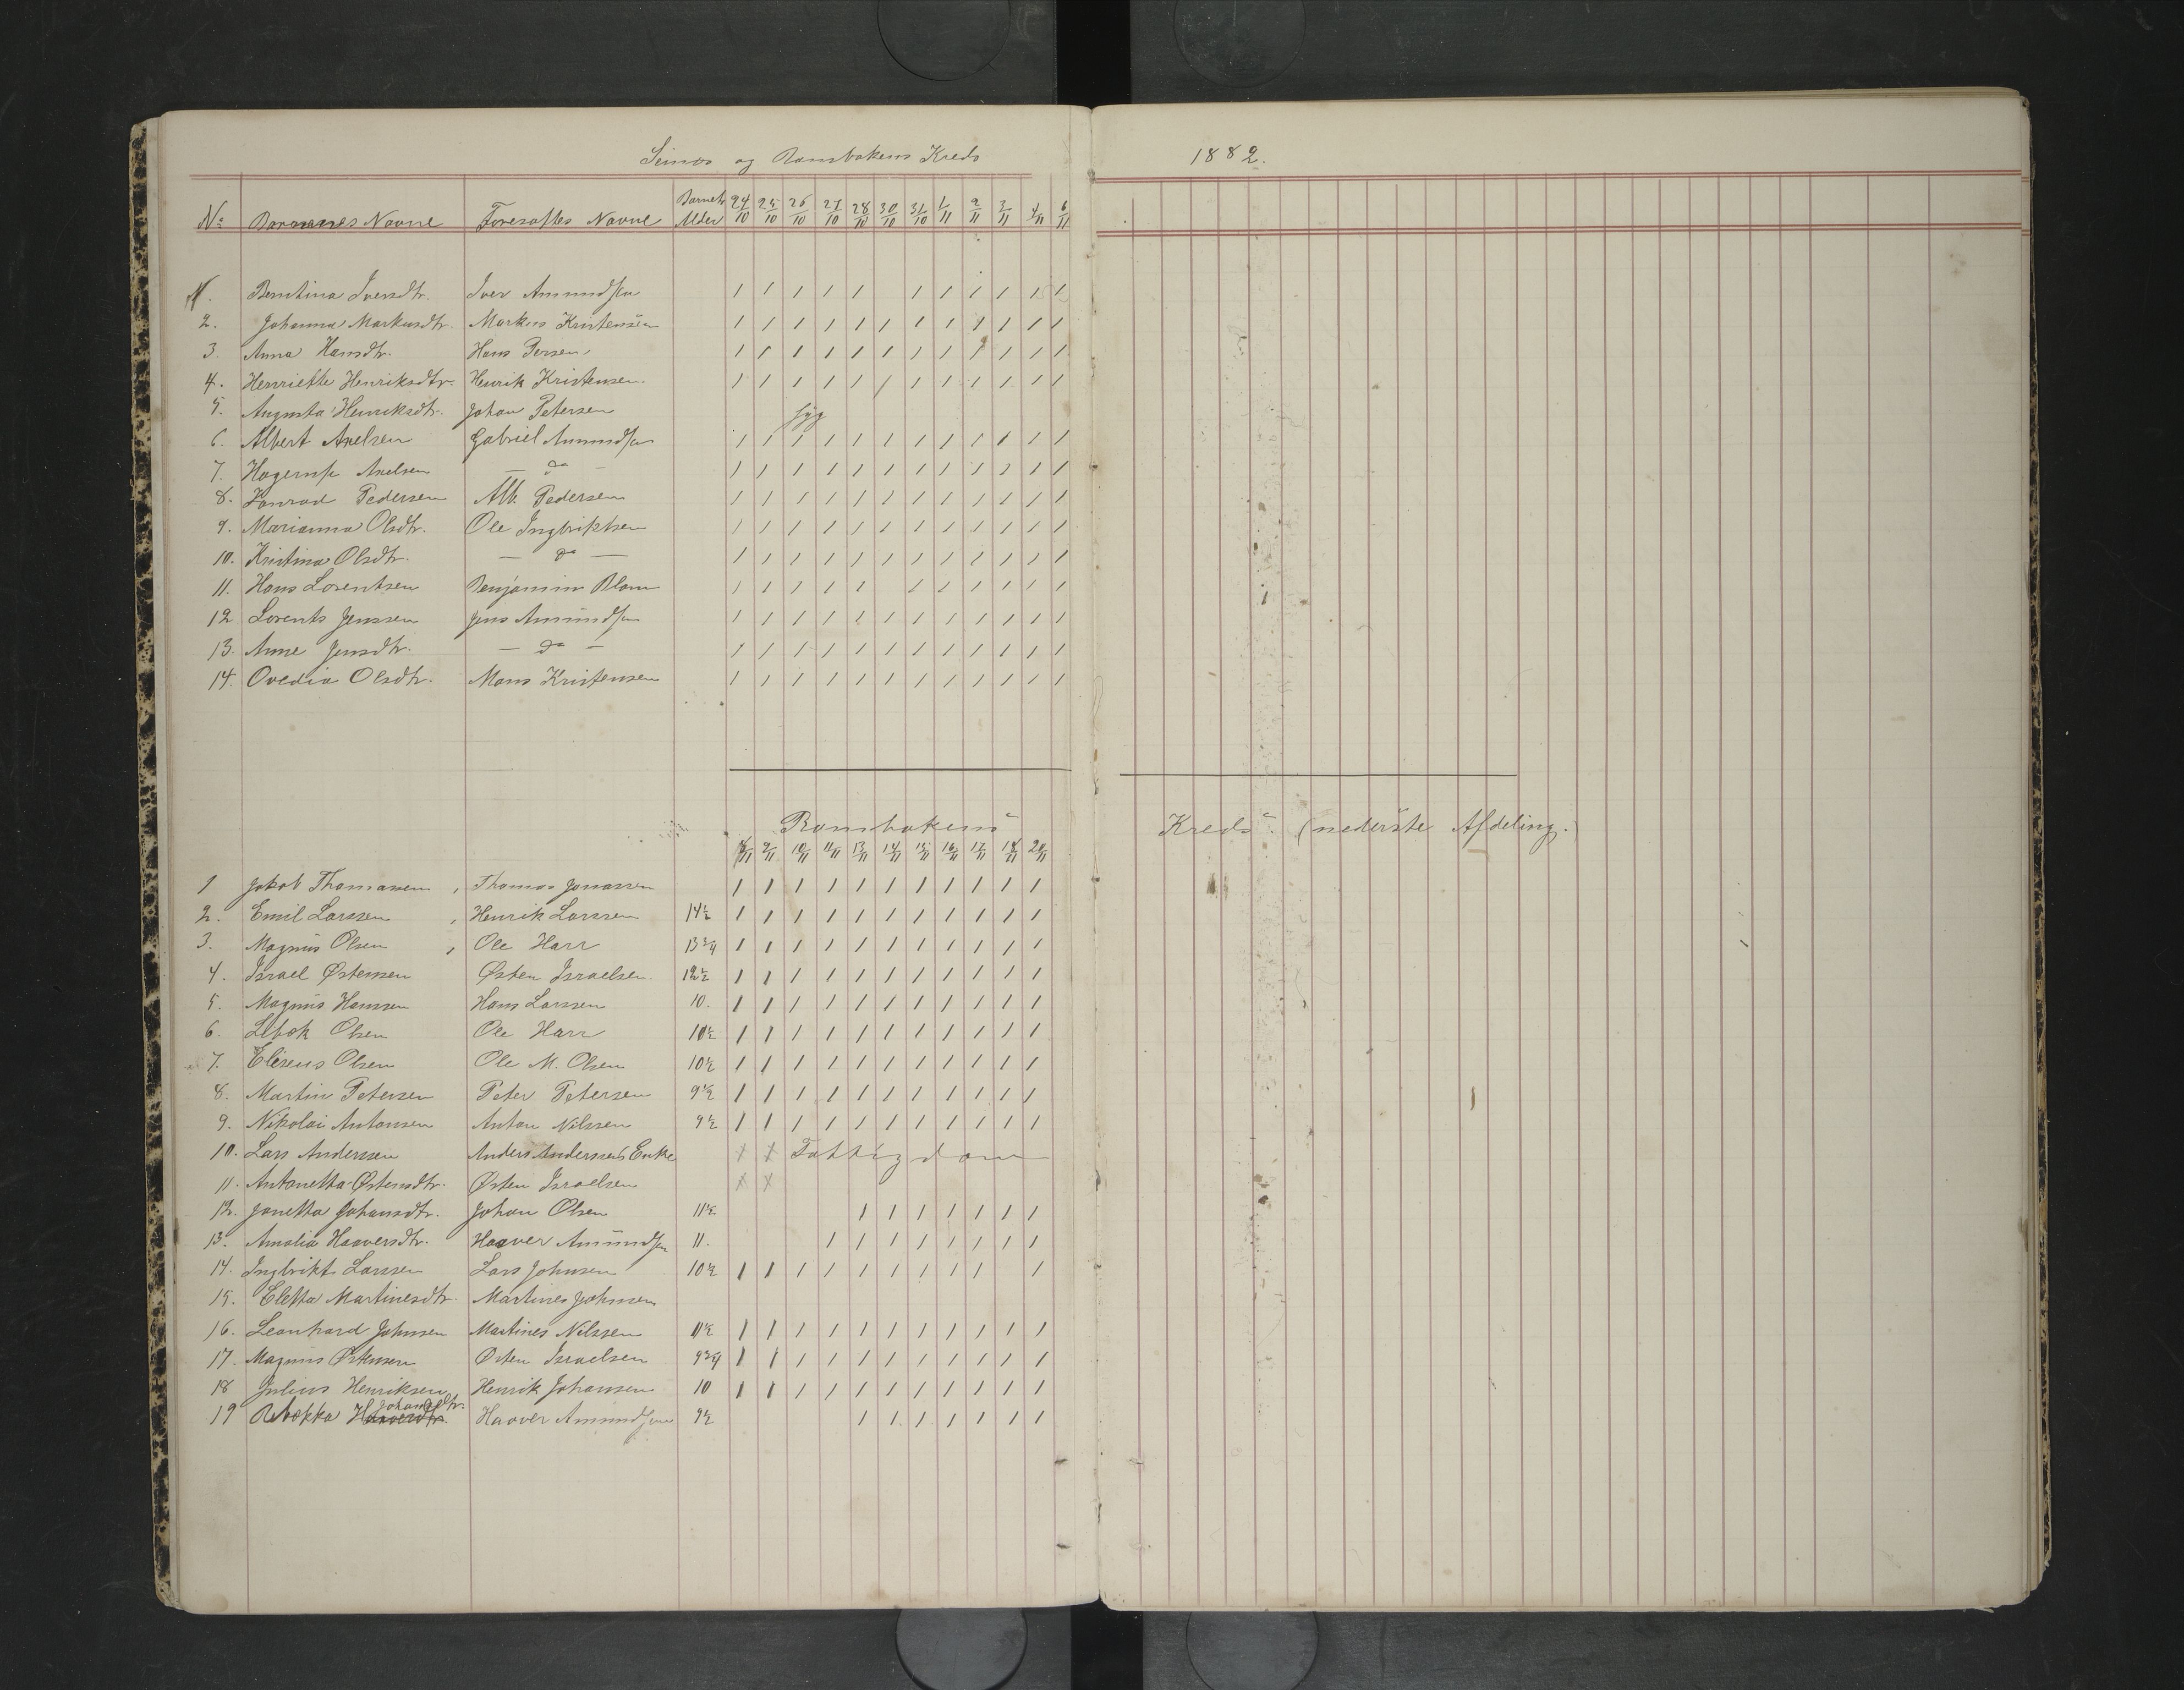 Seines og Ramsbakens Kreds 1882.
No Barnenes Navne Foresattes Navne Barnets Alder 24/10 25/10 26/10 27/10 28/10 30/10 31/10 1/11 2/11 3/11 4/11 6/11
1. Berntina Iversdtr. Iver Amundsen 1 1 1 1 1 1 1 1 1 1 1
2. Johanna Markusdtr. Markus Kristensen 1 1 1 1 1 1 1 1 1 1 1 1
3. Anna Hansdtr. Hans Persen 1 1 1 1 1 1 1 1 1 1 1 1
4. Henriette Henriksdtr. Henrik Kristensen 1 1 1 1 1 1 1 1 1 1 1 1
5. Augusta Henriksdtr. Johan Petersen syg
6. Albert Axelsen Gabriel Amundsen 1 1 1 1 1 1 1 1 1 1 1 1
7. Axelsen — do — 1 1 1 1 1 1 1 1 1 1 1 1
8. Konrad Pedersen Alb. Pedersen 1 1 1 1 1 1 1 1 1 1 1 1
9. Marianna Olsdtr. Ole Ingbriktsen 1 1 1 1 1 1 1 1 1 1 1 1
10. Kristina Olsdtr. — do — 1 1 1 1 1 1 1 1 1 1 1 1
11. Hans Lorentsen Benjamin Blom 1 1 1 1 1 1 1 1 1 1 1
12. Lorents Jenssen Jens Amundsen 1 1 1 1 1 1 1 1 1 1 1 1
13. Anne Jensdtr. — do — 1 1 1 1 1 1 1 1 1 1 1 1
14. Ovedia Olsdtr. Mons Kristensen 1 1 1 1 1 1 1 1 1 1 1 1
Ramsbakens Kreds. (nederste Afdeling.)
8/11 9/11 10/11 11/11 13/11 14/11 15/11 16/11 17/11 18/11 20/11
1 Jakob Thomassen, Thomas Jonassen 1 1 1 1 1 1 1 1 1 1 1
2. Emil Larssen, Henrik Larssen 14½ 1 1 1 1 1 1 1 1 1 1 1
3. Magnus Olsen, Ole Harr 13¾ 1 1 1 1 1 1 1 1 1 1 1
4. Israel Østensen Østen Israelsen 12½ 1 1 1 1 1 1 1 1 1 1 1
5. Magnus Hanssen Hans Larssen 10. 1 1 1 1 1 1 1 1 1 1 1
6. Olsen Ole Harr 10½ 1 1 1 1 1 1 1 1 1 1 1
7. Eliseus Olsen Ole M. Olsen 10½ 1 1 1 1 1 1 1 1 1 1 1
8. Martin Petersen Peter Petersen 9½ 1 1 1 1 1 1 1 1 1 1 1
9. Nikolai Antonsen Anton Nilssen 9½ 1 1 1 1 1 1 1 1 1 1 1
10. Lars Anderssen Anders Anderssens Enke x x Fattigdom
11. Antonetta Østensdtr. Østen Israelsen x x
12. Janetta Johansdtr. Johan Olsen 11½ 1 1 1 1 1 1 1
13. Amalia Haaversdtr. Haaver Amundsen 11. 1 1 1 1 1 1 1 1
14. Ingbrikt Larssen Lars Johnsen 10½ 1 1 1 1 1 1 1 1 1 1
15. Eletta Martinesdtr. Martines Johnsen
16. Leonhard Johnsen Martines Nilssen 11½ 1 1 1 1 1 1 1 1 1 1 1
17. Magnus Østensen Østen Israelsen 9¾ 1 1 1 1 1 1 1 1 1 1 1
18 Julius Henriksen Henrik Johansen 10 1 1 1 1 1 1 1 1 1 1 1
19 Rebekka Haaversdtr. Johansdtr. Haaver Amundsen 9½ 1 1 1 1 1 1 1